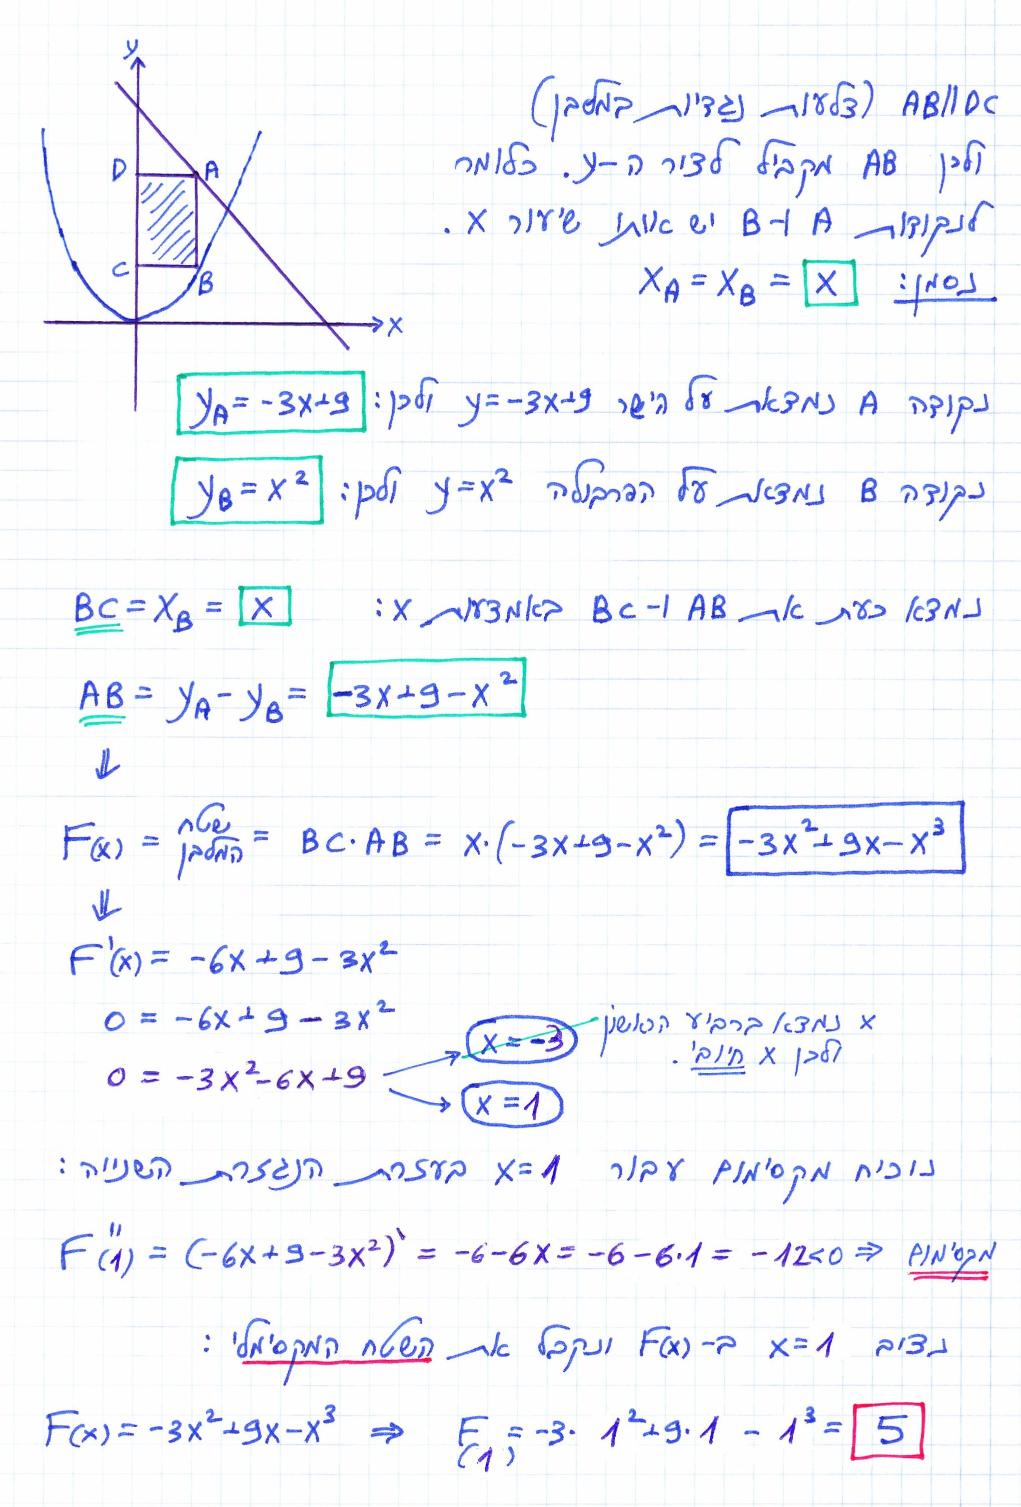 y
D A
C B
x
AB||DC (צלעות נגדיות במלבן)
ולכן AB מקביל לציר ה-y. כלומר
לנקודות A ו-B יש אותו שיעור x.
נסמן: x_A = x_B = x
נקודה A נמצאת על הישר y=-3x+9 ולכן: y_A = -3x+9
נקודה B נמצאת על הפרבולה y=x² ולכן: y_B = x²
נמצא כעת את AB ו-BC באמצעות x: BC = x_B = x
AB = y_A - y_B = -3x+9-x²
⇓
F(x) = שטח המלבן = BC·AB = x·(-3x+9-x²) = -3x²+9x-x³
⇓
F'(x) = -6x+9-3x²
0 = -6x+9-3x²
x = -3 x נמצא ברביע הראשון
ולכן x חיובי.
0 = -3x²-6x+9
x = 1
נוכיח מקסימום עבור x=1 בעזרת הנגזרת השנייה:
F''(1) = (-6x+9-3x²)' = -6-6x = -6-6·1 = -12<0 ⇒ מקסימום
נציב x=1 ב-F(x) ונקבל את השטח המקסימלי:
F(x) = -3x²+9x-x³ ⇒ F(1) = -3·1²+9·1-1³ = 5